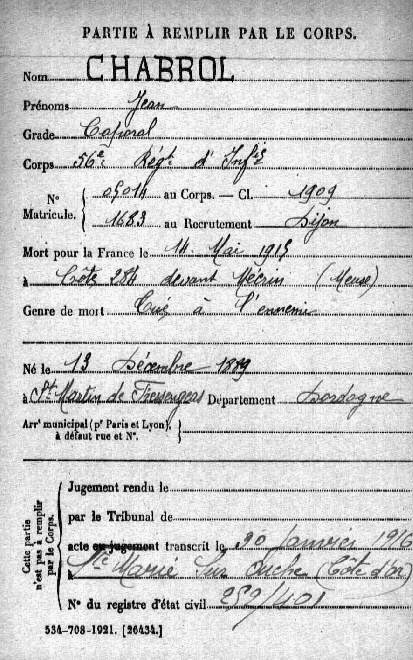 PARTIE À REMPLIR PAR LE CORPS.
Nom CHABROL
Prénoms Jean
Grade Caporal
Corps 56e Régt. d'Infie
N° Matricule. { 05014 au Corps. — Cl. 1909
1683 au Recrutement Dijon
Mort pour la France le 14 Mai 1915
à Côte 284 devant Mécrin (Meuse)
Genre de mort Tué à l'ennemi
Né le 13 Décembre 1889
à St Martin de Fressengeas Département Dordogne
Arrt municipal (pr Paris et Lyon), à défaut rue et N°. }
Cette partie n'est pas à remplir par le Corps.
Jugement rendu le
par le Tribunal de
acte ou jugement transcrit le 20 Janvier 1916
à Ste Marie sur Ouche (Côte d'or)
N° du registre d'état civil 259/401
534-708-1921. [26434.]